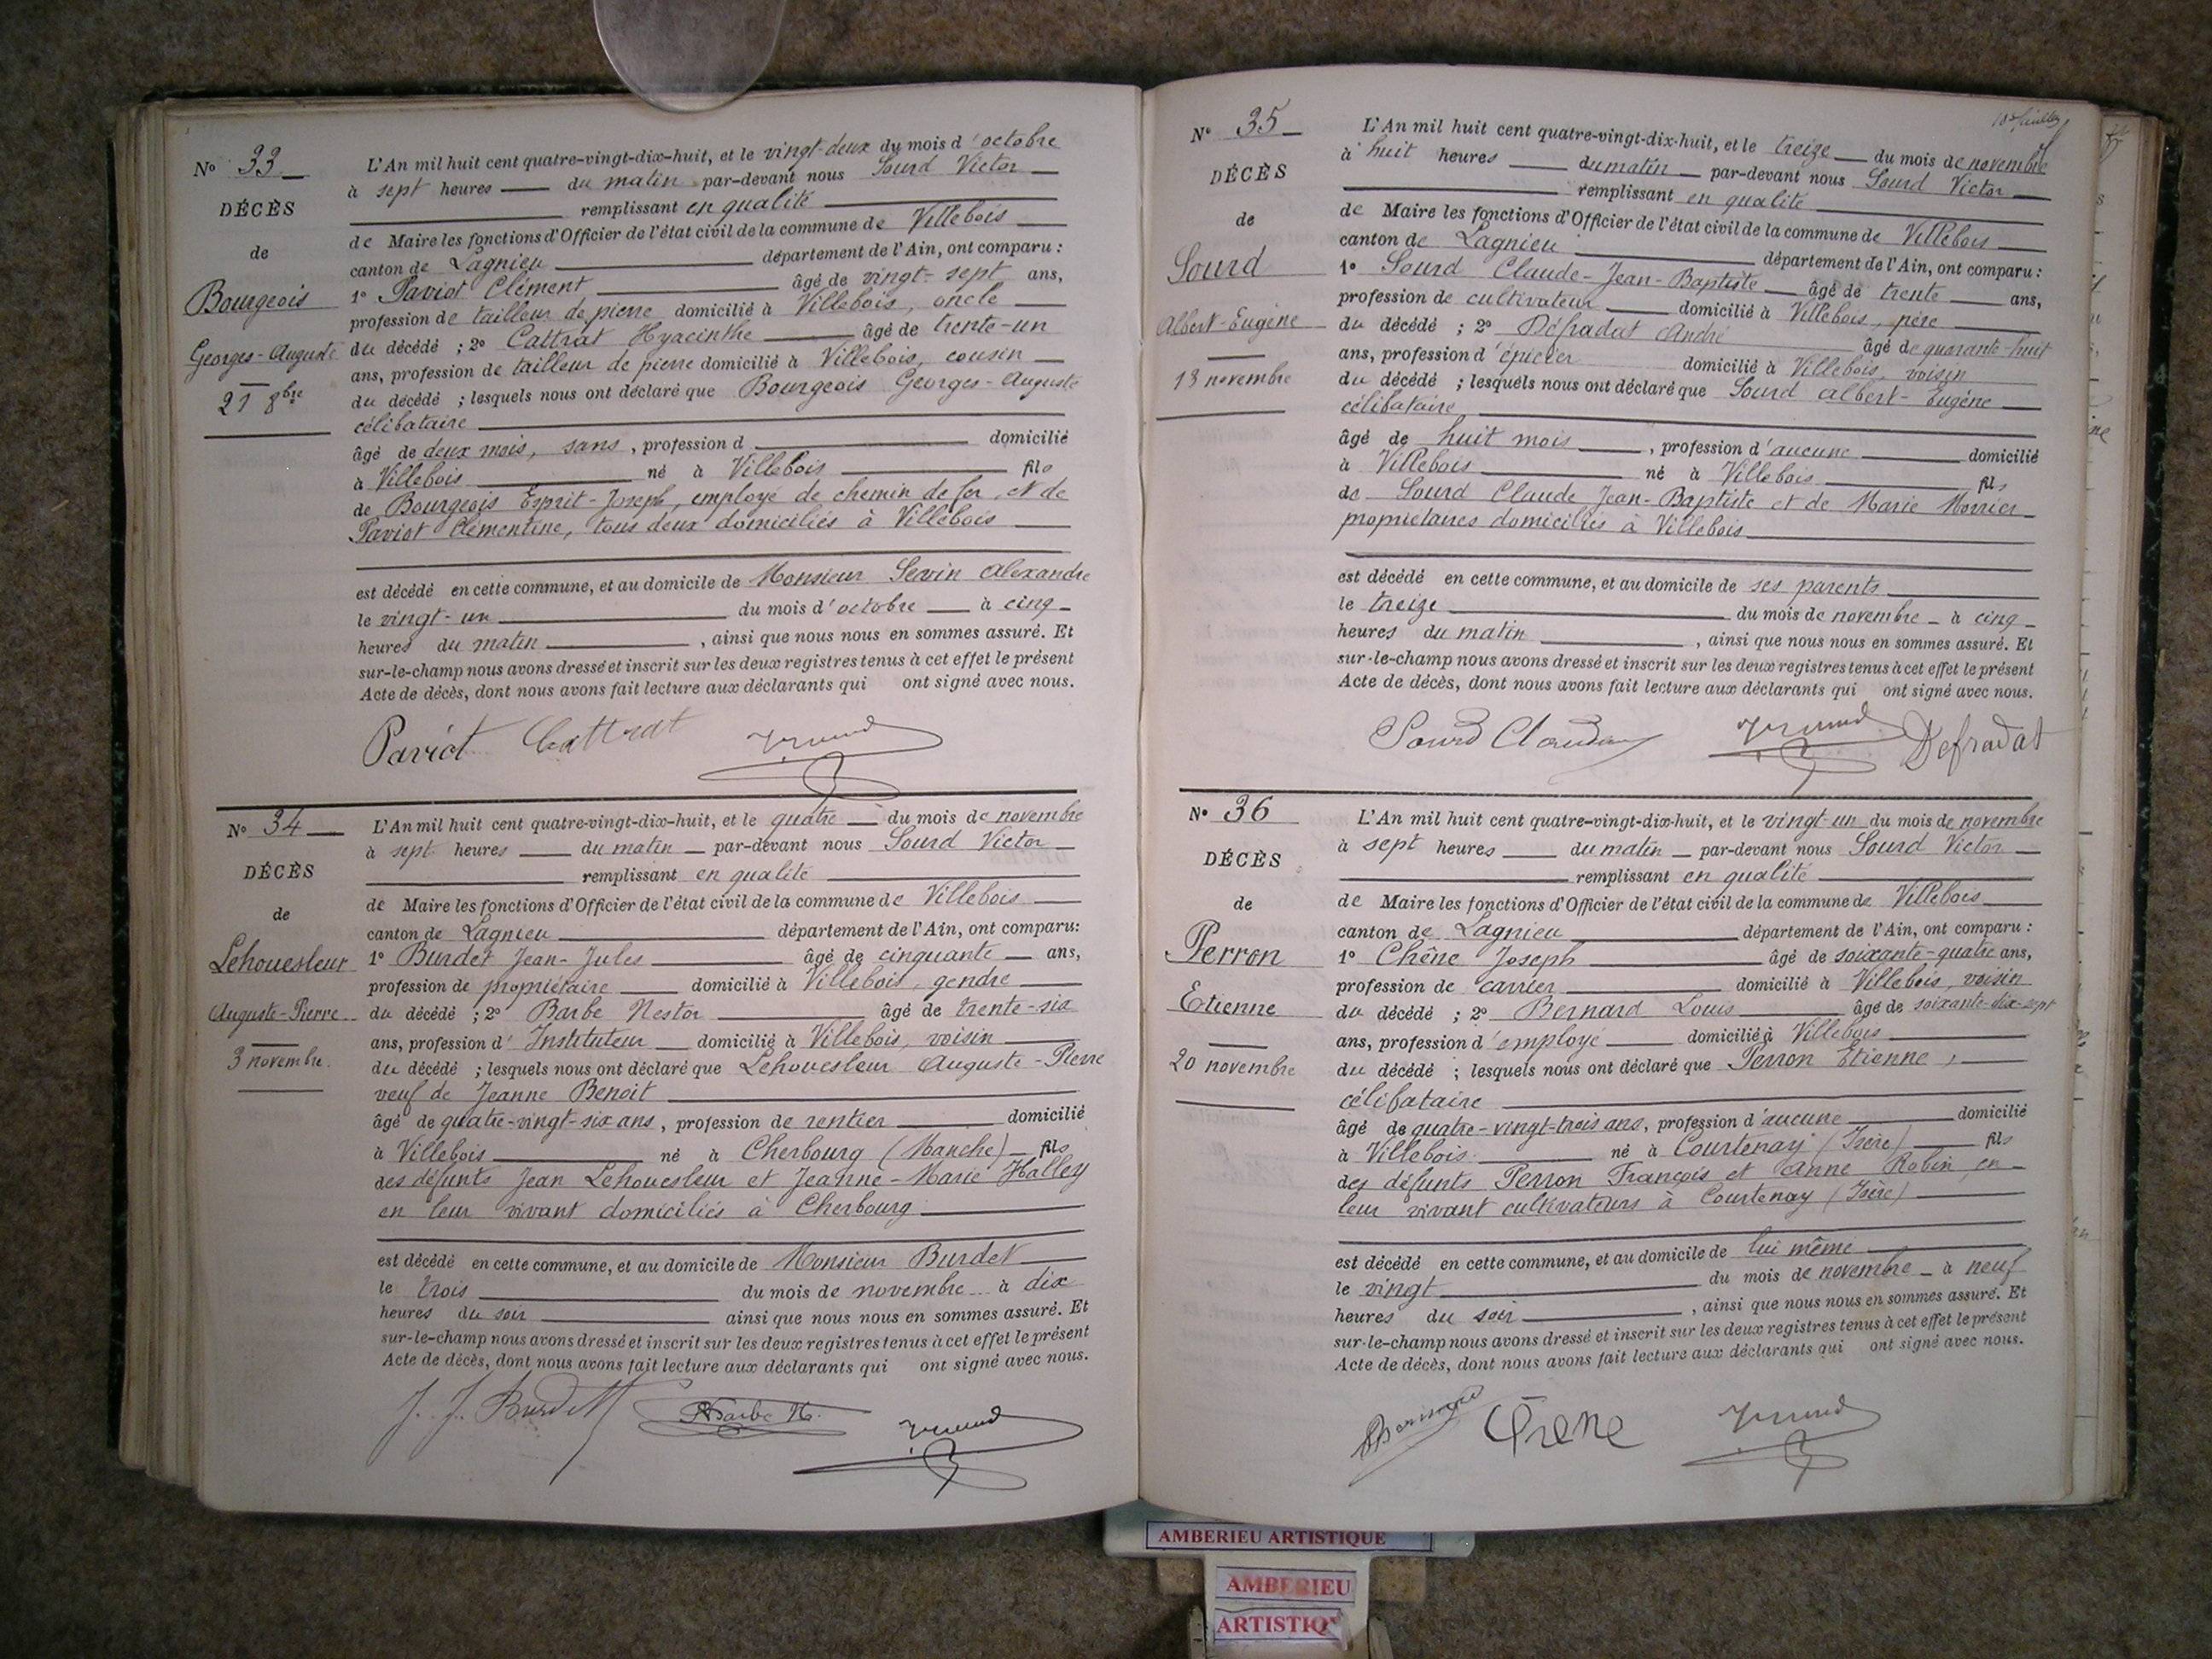 N° 33
DÉCÈS
de
Bourgeois
Georges-Auguste
21 8bre
L'An mil huit cent quatre-vingt-dix-huit, et le vingt-deux du mois d'octobre
à sept heures du matin par-devant nous Sourd Victor
remplissant en qualité
de Maire les fonctions d'Officier de l'état civil de la commune de Villebois
canton de Lagnieu département de l'Ain, ont comparu :
1° Paviot Clément âgé de vingt-sept ans,
profession de tailleur de pierre domicilié à Villebois, oncle
du décédé ; 2° Cattrat Hyacinthe âgé de trente-un
ans, profession de tailleur de pierre domicilié à Villebois, cousin
du décédé ; lesquels nous ont déclaré que Bourgeois Georges-Auguste
célibataire
âgé de deux mois, sans, profession d domicilié
à Villebois né à Villebois fils
de Bourgeois Esprit-Joseph, employé de chemin de fer, et de
Paviot Clémentine, tous deux domiciliés à Villebois
est décédé en cette commune, et au domicile de Monsieur Servin Alexandre
le vingt-un du mois d'octobre à cinq
heures du matin, ainsi que nous nous en sommes assuré. Et
sur-le-champ nous avons dressé et inscrit sur les deux registres tenus à cet effet le présent
Acte de décès, dont nous avons fait lecture aux déclarants qui ont signé avec nous.
Paviot Cattrat
N° 34
DÉCÈS
de
Lehouesleur
Auguste-Pierre
3 novembre.
L'An mil huit cent quatre-vingt-dix-huit, et le quatre du mois de novembre
à sept heures du matin par-devant nous Sourd Victor
remplissant en qualité
de Maire les fonctions d'Officier de l'état civil de la commune de Villebois
canton de Lagnieu département de l'Ain, ont comparu :
1° Burdet Jean-Jules âgé de cinquante ans,
profession de propriétaire domicilié à Villebois, gendre
du décédé ; 2° Barbe Nestor âgé de trente-six
ans, profession d'Instituteur domicilié à Villebois, voisin
du décédé ; lesquels nous ont déclaré que Lehouesleur Auguste-Pierre
veuf de Jeanne Benoit
âgé de quatre-vingt-six ans, profession de rentier domicilié
à Villebois né à Cherbourg (Manche) fils
des défunts Jean Lehouesleur et Jeanne-Marie Halley
en leur vivant domiciliés à Cherbourg
est décédé en cette commune, et au domicile de Monsieur Burdet
le trois du mois de novembre à dix
heures du soir ainsi que nous nous en sommes assuré. Et
sur-le-champ nous avons dressé et inscrit sur les deux registres tenus à cet effet le présent
Acte de décès, dont nous avons fait lecture aux déclarants qui ont signé avec nous.
J. J. Burdet Barbe N.
N° 35
DÉCÈS
de
Sourd
Albert-Eugène
13 novembre
L'An mil huit cent quatre-vingt-dix-huit, et le treize du mois de novembre
à huit heures du matin par-devant nous Sourd Victor
remplissant en qualité
de Maire les fonctions d'Officier de l'état civil de la commune de Villebois
canton de Lagnieu département de l'Ain, ont comparu :
1° Sourd Claude-Jean-Baptiste âgé de trente ans,
profession de cultivateur domicilié à Villebois, père
du décédé ; 2° Défradat André âgé de quarante-huit
ans, profession d'épicier domicilié à Villebois, voisin
du décédé ; lesquels nous ont déclaré que Sourd Albert-Eugène
célibataire
âgé de huit mois, profession d'aucune domicilié
à Villebois né à Villebois fils
de Sourd Claude Jean-Baptiste et de Marie Morrier
propriétaires domiciliés à Villebois
est décédé en cette commune, et au domicile de ses parents
le treize du mois de novembre à cinq
heures du matin, ainsi que nous nous en sommes assuré. Et
sur-le-champ nous avons dressé et inscrit sur les deux registres tenus à cet effet le présent
Acte de décès, dont nous avons fait lecture aux déclarants qui ont signé avec nous.
Sourd Claude Defradat
N° 36
DÉCÈS
de
Perron
Etienne
20 novembre
L'An mil huit cent quatre-vingt-dix-huit, et le vingt-un du mois de novembre
à sept heures du matin par-devant nous Sourd Victor
remplissant en qualité
de Maire les fonctions d'Officier de l'état civil de la commune de Villebois
canton de Lagnieu département de l'Ain, ont comparu :
1° Chêne Joseph âgé de soixante-quatre ans,
profession de carrier domicilié à Villebois, voisin
du décédé ; 2° Bernard Louis âgé de soixante-dix-sept
ans, profession d'employé domicilié à Villebois
du décédé ; lesquels nous ont déclaré que Perron Etienne,
célibataire
âgé de quatre-vingt-trois ans, profession d'aucune domicilié
à Villebois né à Courtenay (Isère) fils
des défunts Perron François et Anne Robin, en
leur vivant cultivateurs à Courtenay (Isère)
est décédé en cette commune, et au domicile de lui même
le vingt du mois de novembre à neuf
heures du soir, ainsi que nous nous en sommes assuré. Et
sur-le-champ nous avons dressé et inscrit sur les deux registres tenus à cet effet le présent
Acte de décès, dont nous avons fait lecture aux déclarants qui ont signé avec nous.
AMBERIEU ARTISTIQUE
AMBERIEU
ARTISTIQ